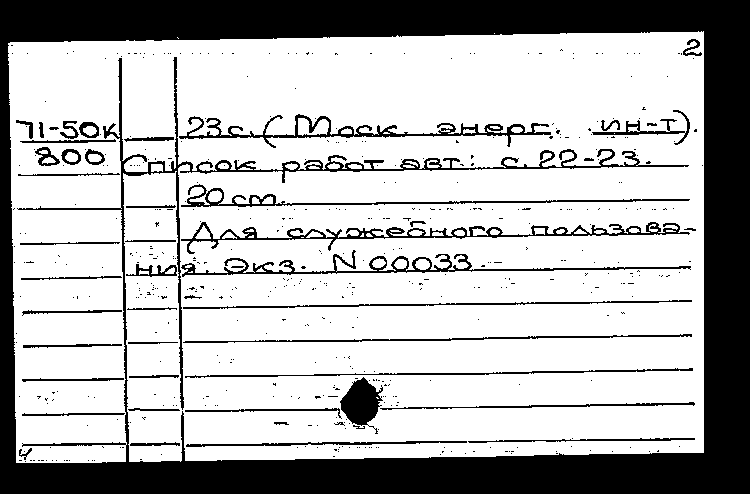 2
71-50к 23с. (Моск. энерг. ин-т).
800 Список работ авт.: с. 22-23.
20 cm.
Для служебного пользова-
ния. Экз. N 00033.
4